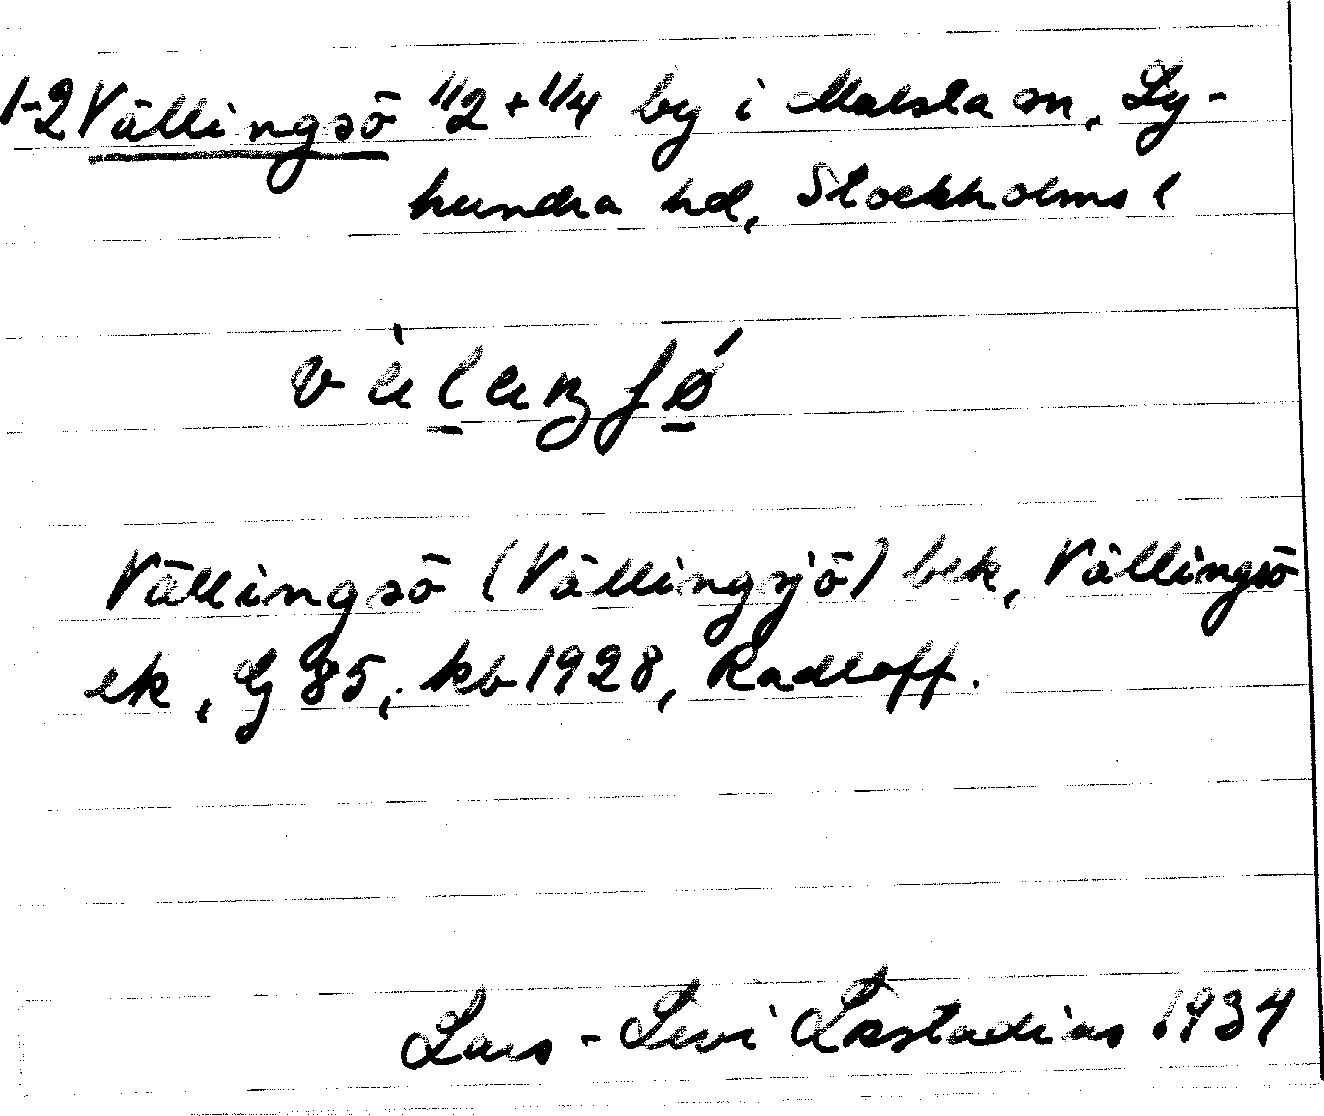 1-2 Vällingsö 1/2 + 1/4 by i Malsta sn, Ly-
hundra hd, Stockholms l
Vällingsö (Vällingsjö) bek, Vällingsö
ek, G 85, kb 1928, Radloff.
Lars-Levi Læstadius 1934